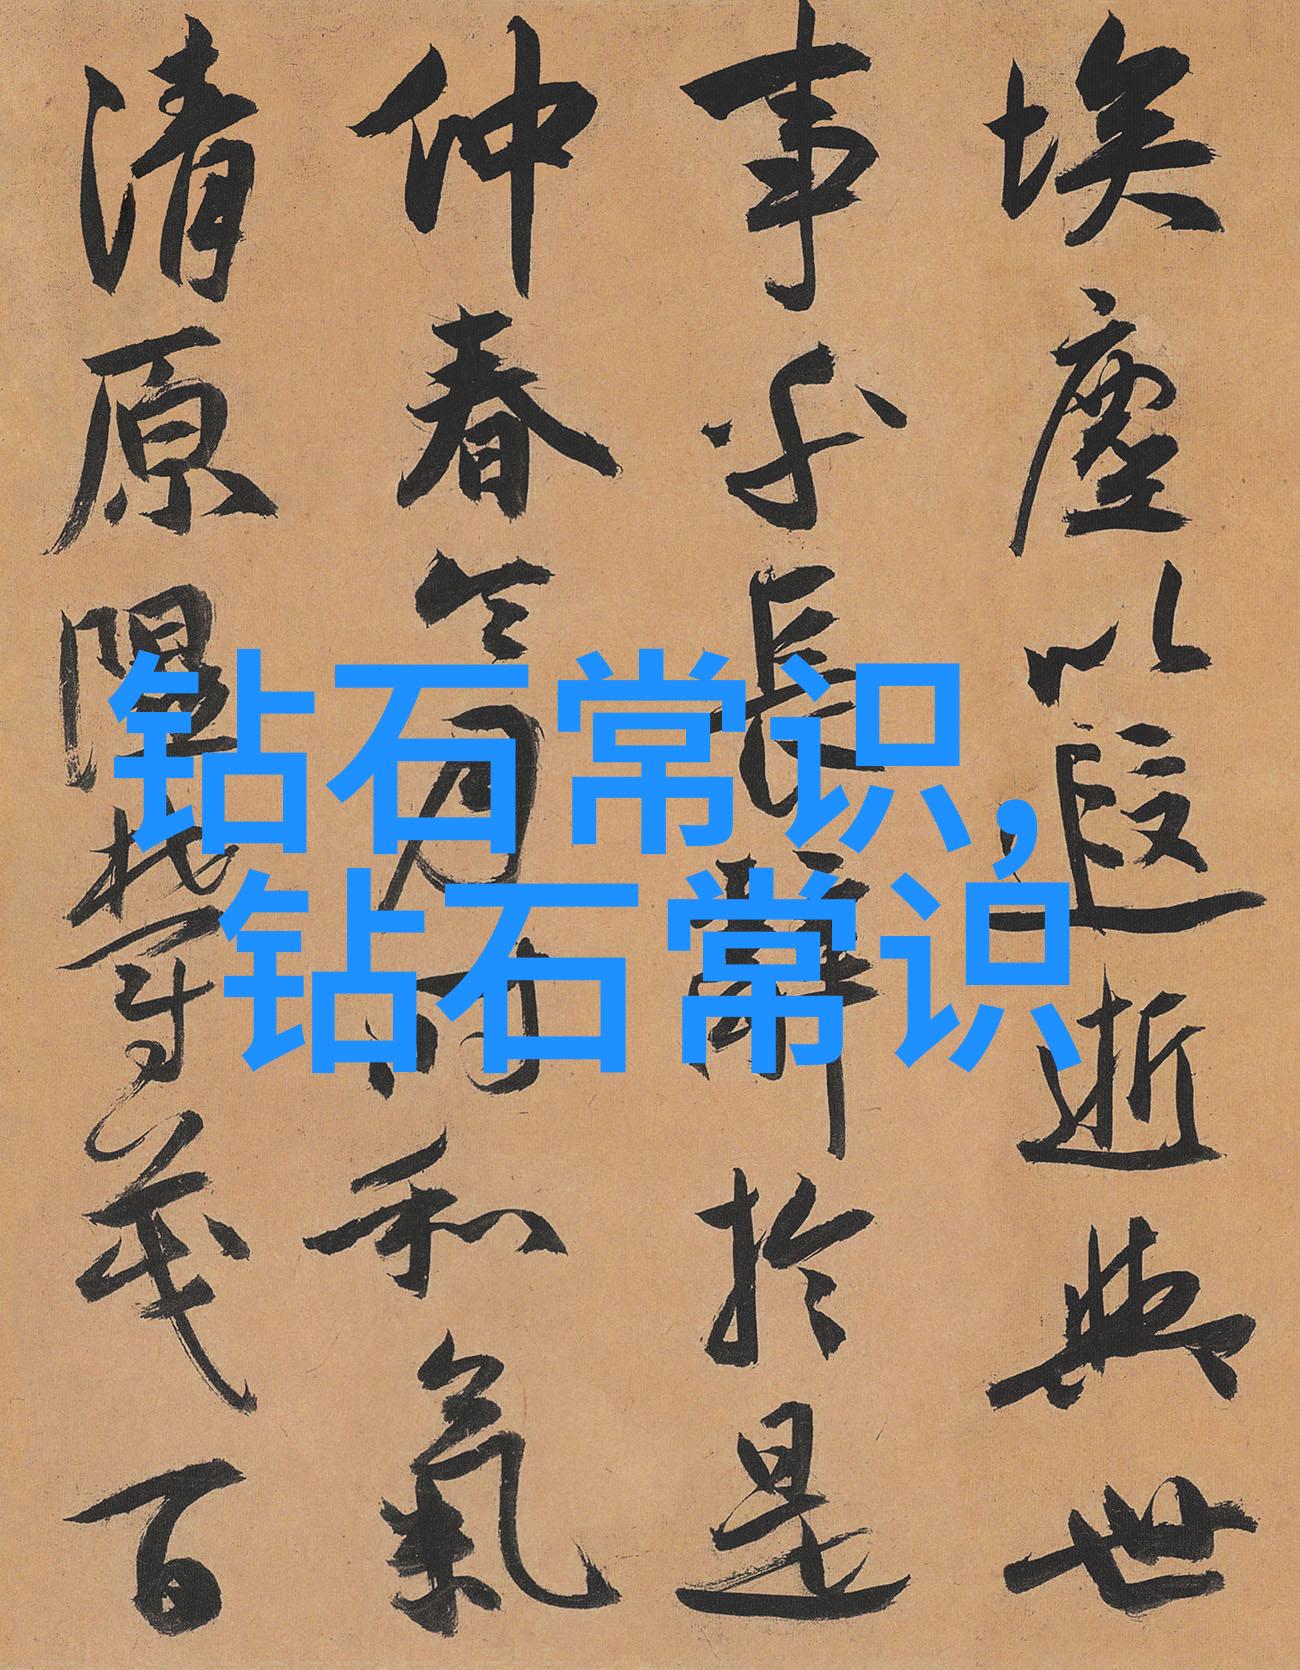 钻石常识,
钻石常识
埃塵以遐逝與世
事乎長辭於是
仲春令月時和氣
清原隰鬱茂百